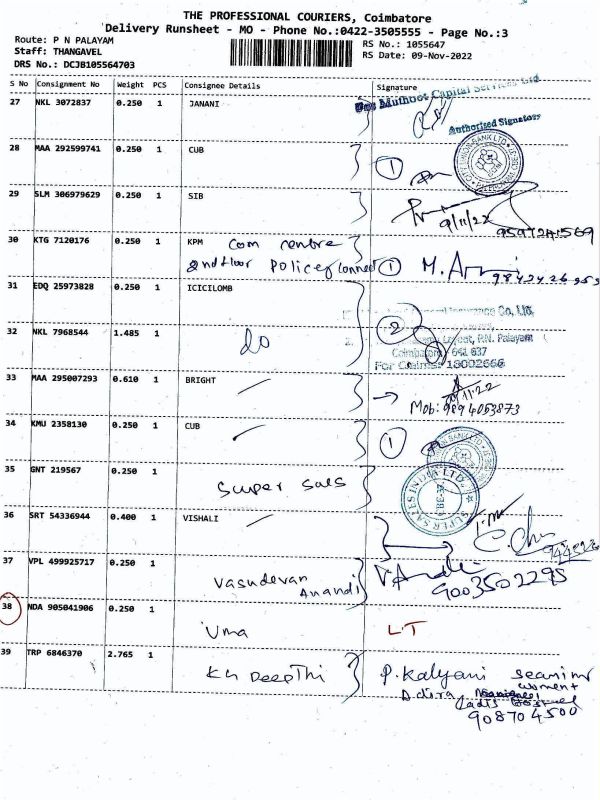 THE PROFESSIONAL COURIERS, Coimbatore
Delivery Runsheet - MO - Phone No.:0422-3505555 - Page No.:3
Route: P N PALAYAM
Staff: THANGAVEL
DRS No.: DCJB105564703
RS No.: 1055647
RS Date: 09-Nov-2022
S No Consignment No Weight PCS Consignee Details Signature
27 NKL 3072837 0.250 1 JANANI
Muthoot Capital Services Ltd
Authorised Signatory
28 MAA 292599741 0.250 1 CUB 1
29 SLM 306979629 0.250 1 SIB
9/11/22
30 KTG 7120176 0.250 1 KPM Com centre
2nd floor Police 1 M.
31 EDQ 25973828 0.250 1 ICICILOMB
Insurance Co, Ltd.
32 NKL 7968544 1.485 1 do 2
P.N. Palayam
Coimbatore 641 037
For Claims: 18002666
33 MAA 295007293 0.610 1 BRIGHT
11.22
Mob: 9894053873
34 KMU 2358130 0.250 1 CUB 1
35 GNT 219567 0.250 1 Super Sals
SUPER SALES INDIA LTD.
36 SRT 54336944 0.400 1 VISHALI
37 VPL 499925717 0.250 1 Vasudevan
Anandi
9003502295
38 NDA 905041906 0.250 1 Uma L.T
39 TRP 6846370 2.765 1 Kh Deepthi P. Kalyani
908704500